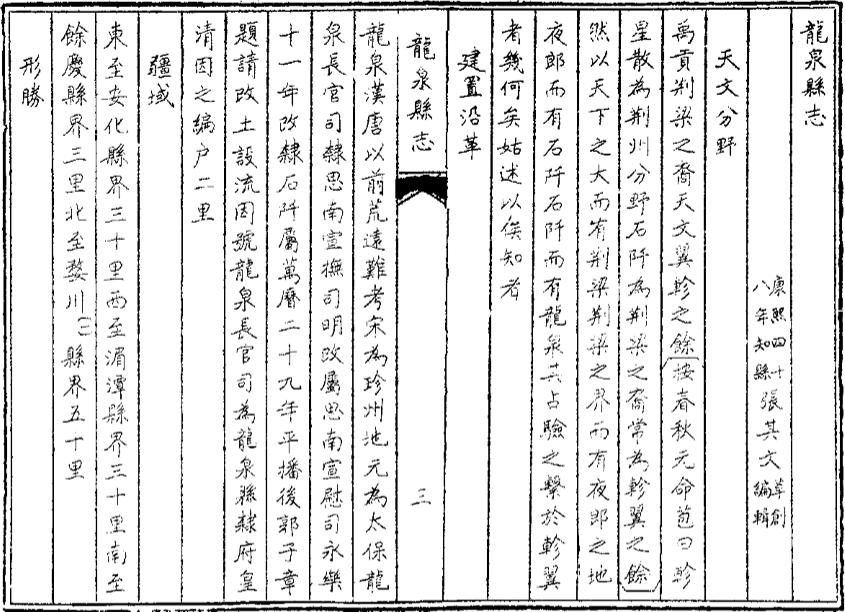 龍泉縣志
康熙四十
八年知縣
張其文
草創
編輯
天文分野
禹貢荆梁之裔天文翼軫之餘按春秋元命苞曰軫
星散為荆州分野石阡為荆梁之裔常為軫翼之餘
然以天下之大而有荆梁荆梁之界而有夜郎之地
夜郎而有石阡石阡而有龍泉其占驗之繫於軫翼
者幾何矣姑述以俟知者
建置沿革
龍泉縣志
三
龍泉漢唐以前荒遠難考宋為珍州地元為太保龍
泉長官司隸思南宣撫司明改屬思南宣慰司永樂
十一年改隸石阡屬萬曆二十九年平播後郭子章
題請改土設流因號龍泉長官司為龍泉縣隸府皇
清因之編户二里
疆域
東至安化縣界三十里西至湄潭縣界三十里南至
餘慶縣界三里北至婺川(一)縣界五十里
形勝